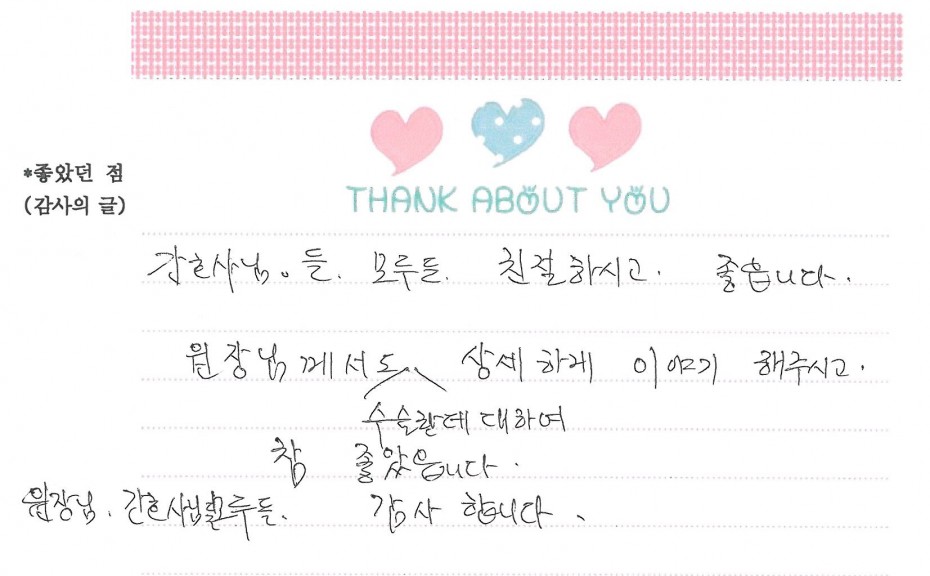 *좋았던 점
(감사의 글)
THANK ABOUT YOU
간호사님。들. 모두들. 친절하시고. 좋읍니다.
원장님께서도 상세하게 이야기 해주시고.
수술한데 대하여
참 좋았읍니다.
원장님. 간호사님 모두들. 감사 합니다.